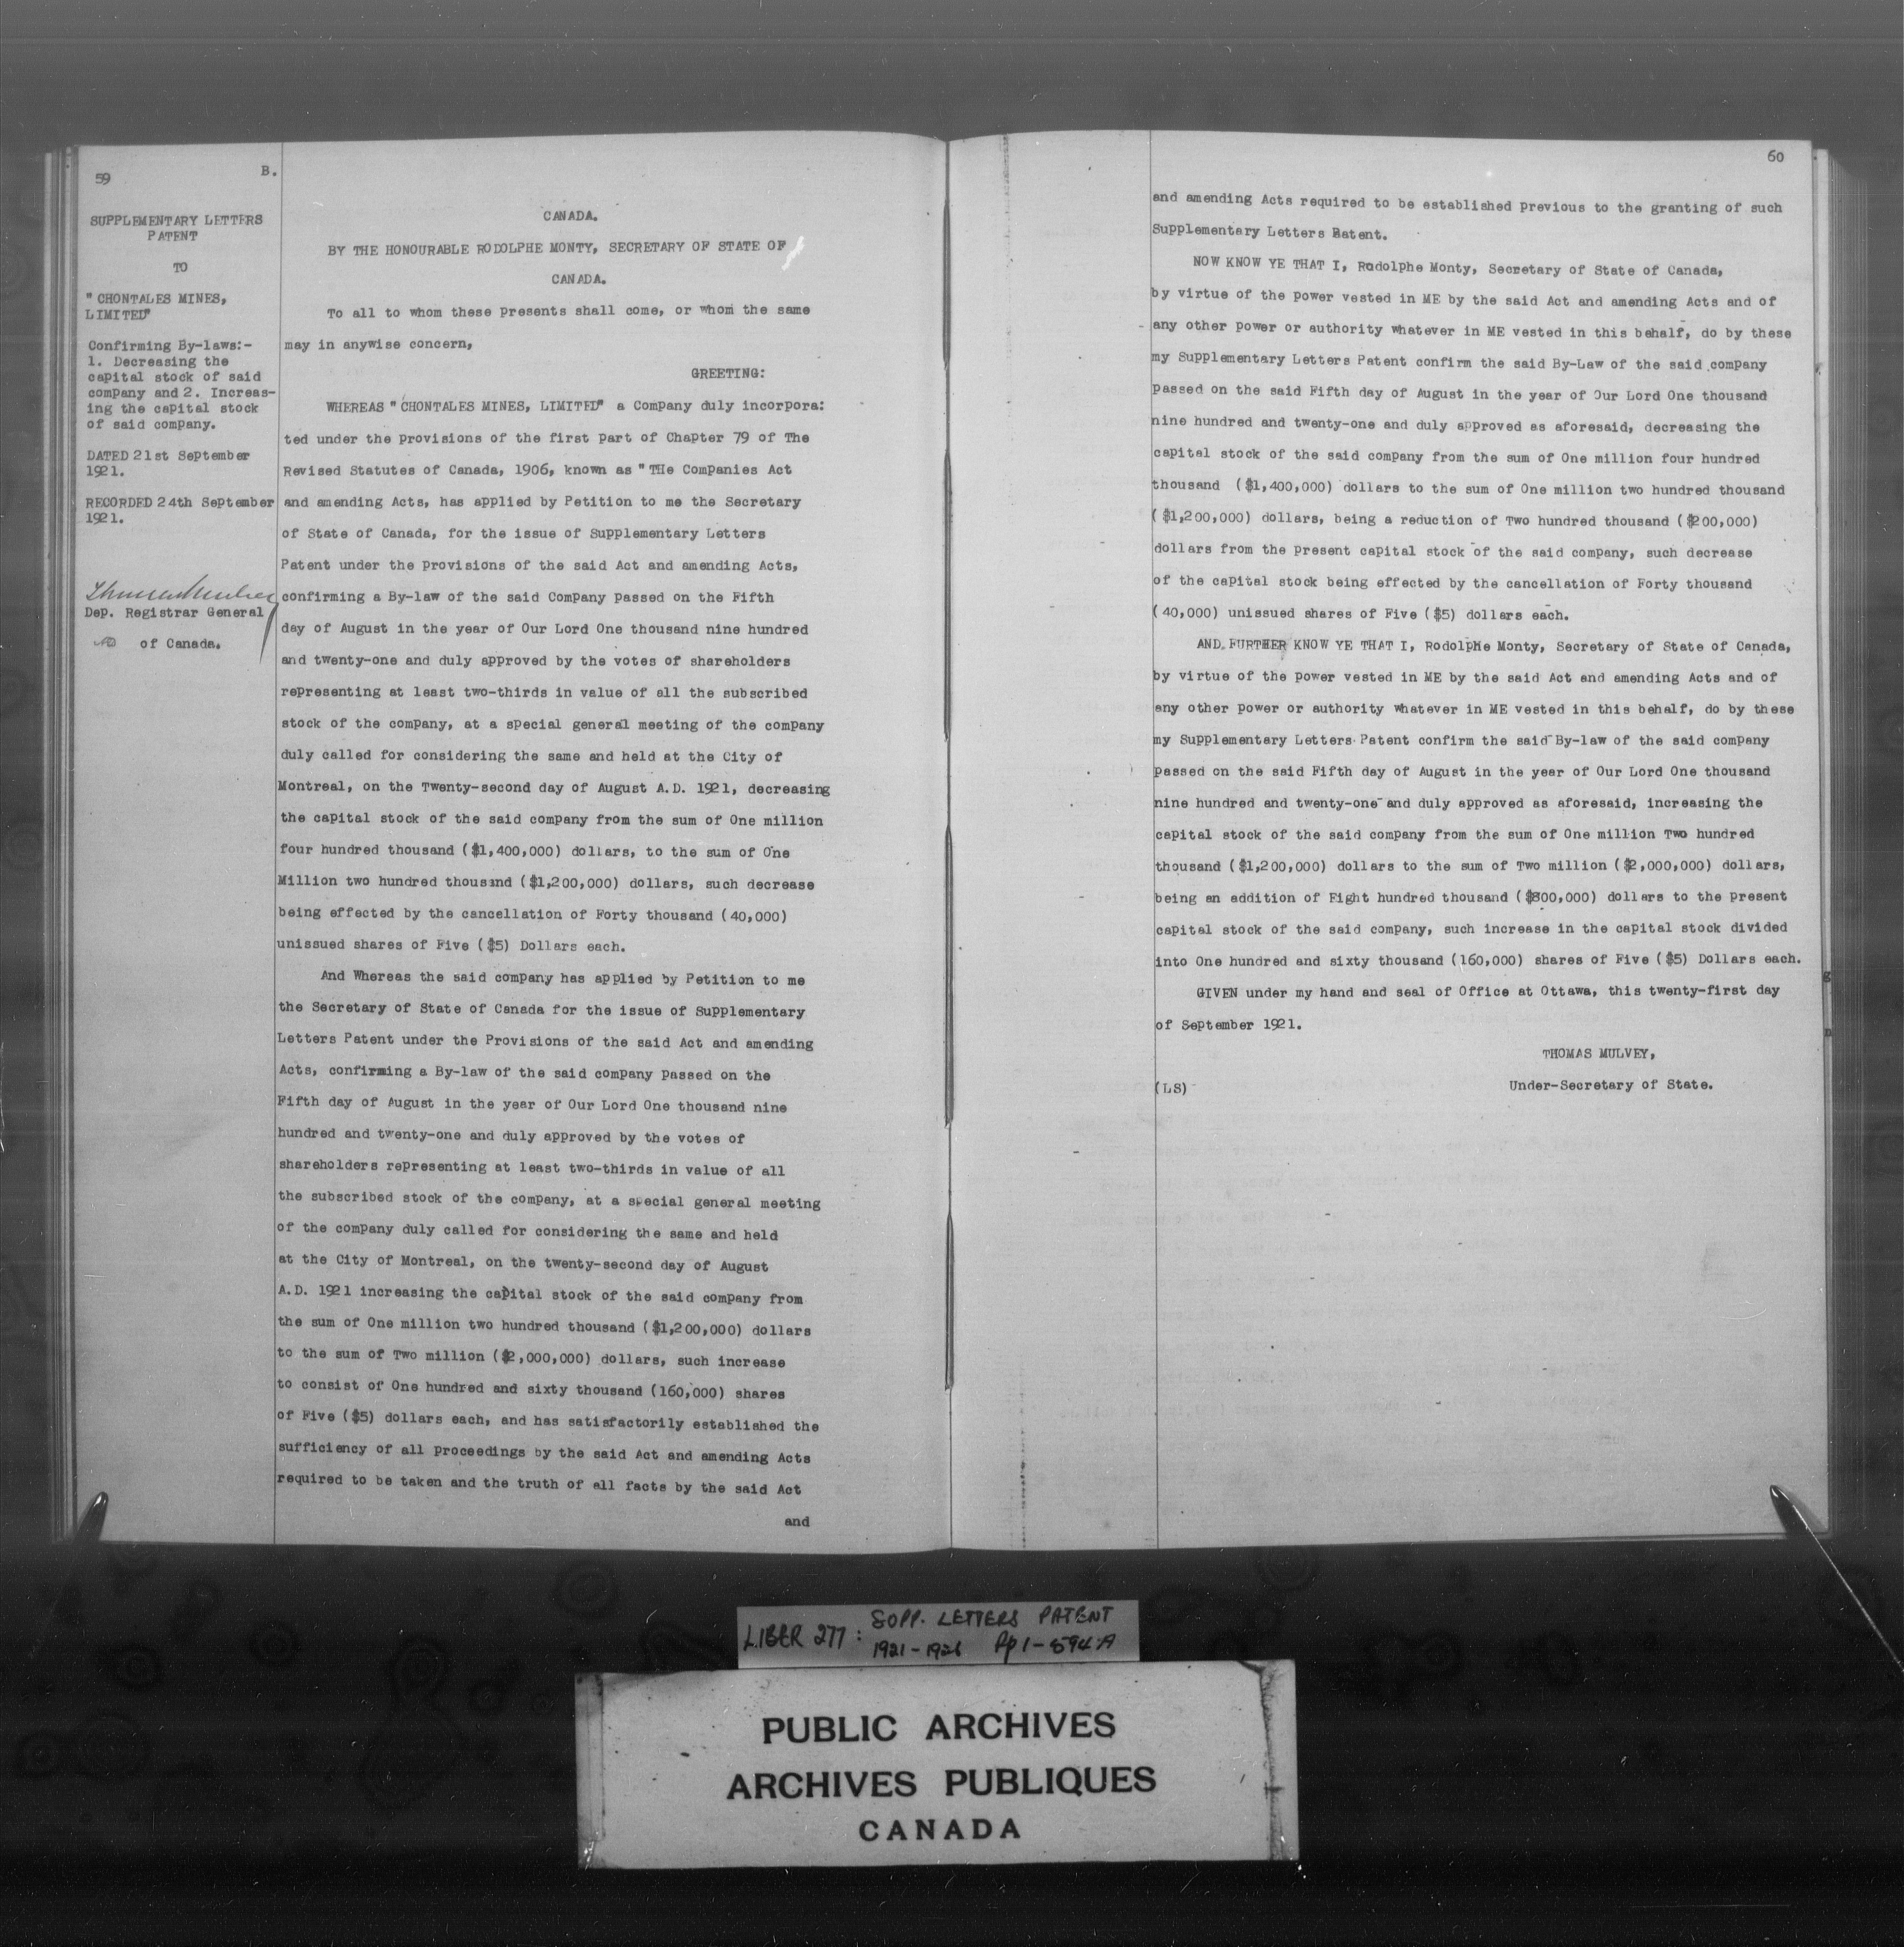 59
B.
SUPPLEMENTARY LETTERS
PATENT
TO
"CHONTALES MINES,
LIMITED"
Confirming By-laws:-
1. Decreasing the
capital stock of said
company and 2. Increas-
ing the capital stock
of said company.
DATED 21st September
1921.
RECORDED 24th September
1921.
Thomas Mulvey
Dep. Registrar General
of Canada.
CANADA.
BY THE HONOURABLE RODOLPHE MONTY, SECRETARY OF STATE OF
CANADA.
To all to whom these presents shall come, or whom the same
may in anywise concern,
GREETING:
WHEREAS "CHONTALES MINES, LIMITED" a Company duly incorpora:
ted under the provisions of the first part of Chapter 79 of The
Revised Statutes of Canada, 1906, known as "THe Companies Act
and amending Acts, has applied by Petition to me the Secretary
of State of Canada, for the issue of Supplementary Letters
Patent under the provisions of the said Act and amending Acts,
confirming a By-law of the said Company passed on the Fifth
day of August in the year of Our Lord One thousand nine hundred
and twenty-one and duly approved by the votes of shareholders
representing at least two-thirds in value of all the subscribed
stock of the company, at a special general meeting of the company
duly called for considering the same and held at the City of
Montreal, on the Twenty-second day of August A.D. 1921, decreasing
the capital stock of the said company from the sum of One million
four hundred thousand ($1,400,000) dollars, to the sum of One
Million two hundred thousand ($1,200,000) dollars, such decrease
being effected by the cancellation of Forty thousand (40,000)
unissued shares of Five ($5) Dollars each.
And Whereas the said company has applied by Petition to me
the Secretary of State of Canada for the issue of Supplementary
Letters Patent under the Provisions of the said Act and amending
Acts, confirming a By-law of the said company passed on the
Fifth day of August in the year of Our Lord One thousand nine
hundred and twenty-one and duly approved by the votes of
shareholders representing at least two-thirds in value of all
the subscribed stock of the company, at a special general meeting
of the company duly called for considering the same and held
at the City of Montreal, on the twenty-second day of August
A.D. 1921 increasing the capital stock of the said company from
the sum of One million two hundred thousand ($1,200,000) dollars
to the sum of Two million ($2,000,000) dollars, such increase
to consist of One hundred and sixty thousand (160,000) shares
of Five ($5) dollars each, and has satisfactorily established the
sufficiency of all proceedings by the said Act and amending Acts
required to be taken and the truth of all facts by the said Act
and
60
and amending Acts required to be established previous to the granting of such
Supplementary Letters Patent.
NOW KNOW YE THAT I, Rodolphe Monty, Secretary of State of Canada,
by virtue of the power vested in ME by the said Act and amending Acts and of
any other power or authority whatever in ME vested in this behalf, do by these
my Supplementary Letters Patent confirm the said By-Law of the said company
passed on the said Fifth day of August in the year of Our Lord One thousand
nine hundred and twenty-one and duly approved as aforesaid, decreasing the
capital stock of the said company from the sum of One million four hundred
thousand ($1,400,000) dollars to the sum of One million two hundred thousand
($1,200,000) dollars, being a reduction of Two hundred thousand ($200,000)
dollars from the present capital stock of the said company, such decrease
of the capital stock being effected by the cancellation of Forty thousand
(40,000) unissued shares of Five ($5) dollars each.
AND FURTHER KNOW YE THAT I, Rodolphe Monty, Secretary of State of Canada,
by virtue of the power vested in ME by the said Act and amending Acts and of
any other power or authority whatever in ME vested in this behalf, do by these
my Supplementary Letters Patent confirm the said By-law of the said company
passed on the said Fifth day of August in the year of Our Lord One thousand
nine hundred and twenty-one and duly approved as aforesaid, increasing the
capital stock of the said company from the sum of One million Two hundred
thousand ($1,200,000) dollars to the sum of Two million ($2,000,000) dollars,
being an addition of Eight hundred thousand ($800,000) dollars to the present
capital stock of the said company, such increase in the capital stock divided
into One hundred and sixty thousand (160,000) shares of Five ($5) Dollars each.
GIVEN under my hand and seal of Office at Ottawa, this twenty-first day
of September 1921.
THOMAS MULVEY,
(LS) Under-Secretary of State.
LIBER 277: SUPP. LETTERS PATENT
1921-1926 Pp 1-594A
PUBLIC ARCHIVES
ARCHIVES PUBLIQUES
CANADA